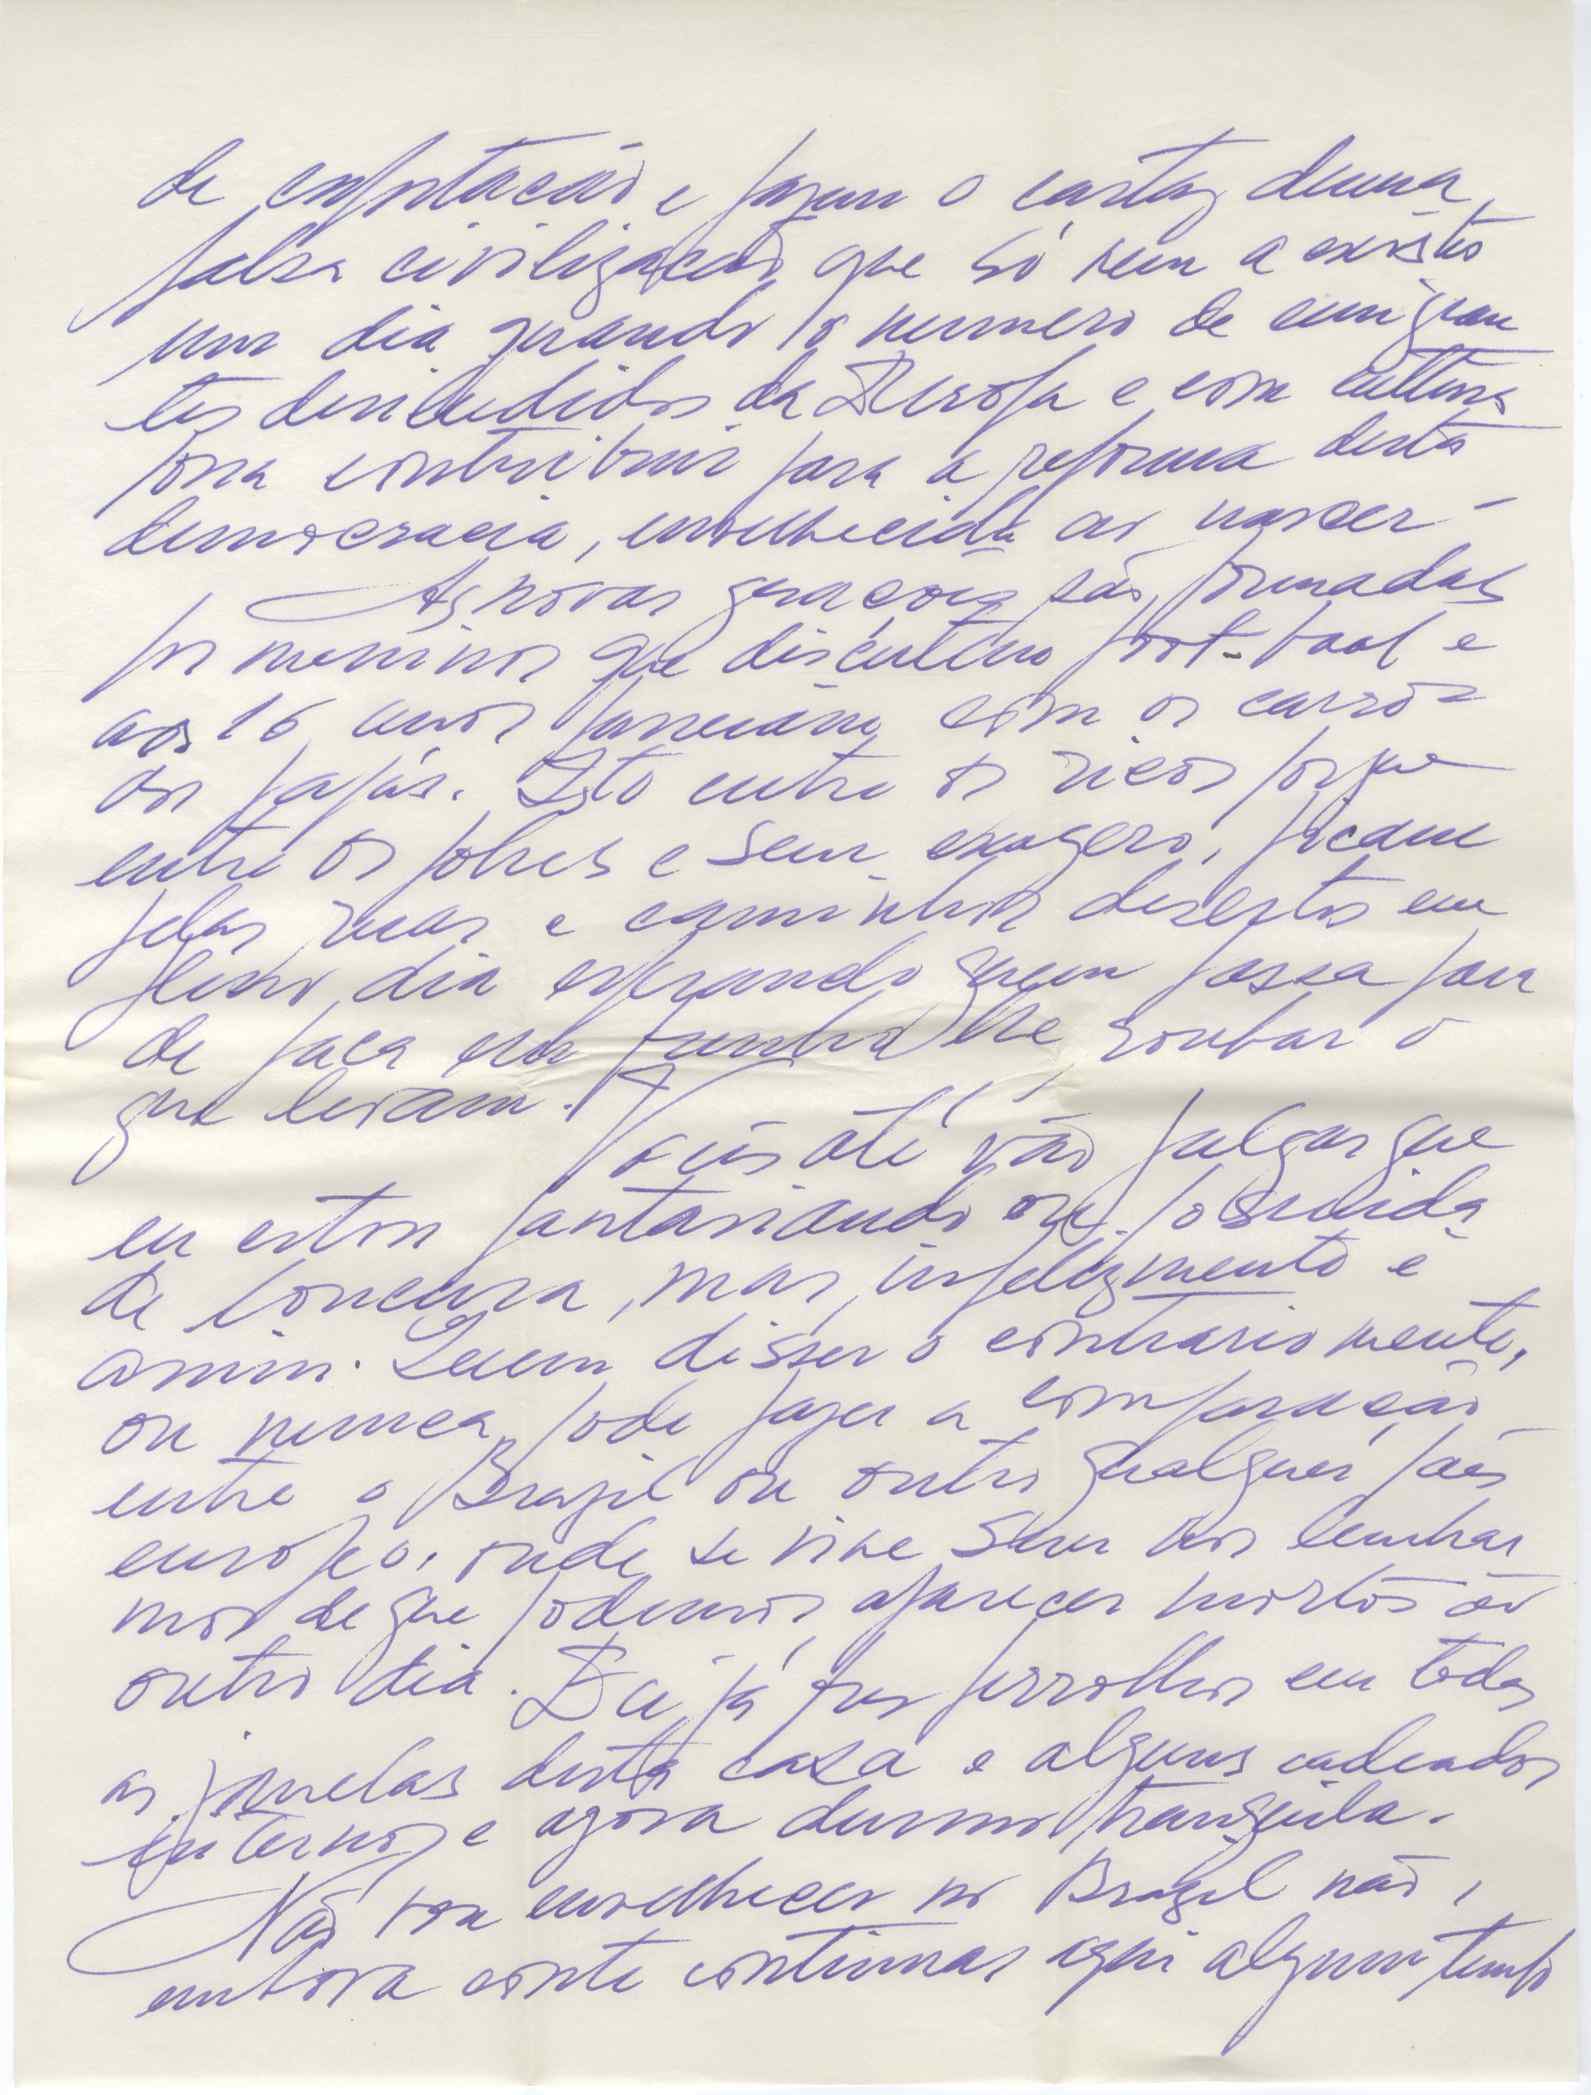 de exportação e fazem o cartaz duma
falsa civilização que só vem a existir
um dia quando o numero de emigran
tes desiludidos da Europa e com cultura
possa contribuir para a reforma desta
democracia, envelhecida ao nascer -
As novas gerações são formadas
por meninos que discutem foot-baal e
aos 16 anos passeiam com os carros
dos papás. Isto entre os ricos porque
entre os pobres e sem exagero, ficam
pelas ruas e caminhos desertos em
pleno dia esperando quem passa para
de faca em punho lhe roubar o
que levam.
Vocês até vão julgar que
eu estou fantasiando ou possuida
de loucura, mas, infelizmente é
assim. Quem disser o contrario mente,
ou nunca pode fazer a comparação
entre o Brazil ou outro qualquer país
europeo, onde se vive sem nos lembrar
mos de que podemos aparecer mortos ao
outro dia. Eu já pus ferrolhos em todas
as janelas desta casa e alguns cadeados
internos e agora durmo tranquila.
Não vou envelhecer no Brazil não,
embora conte continuar aqui algum tempo